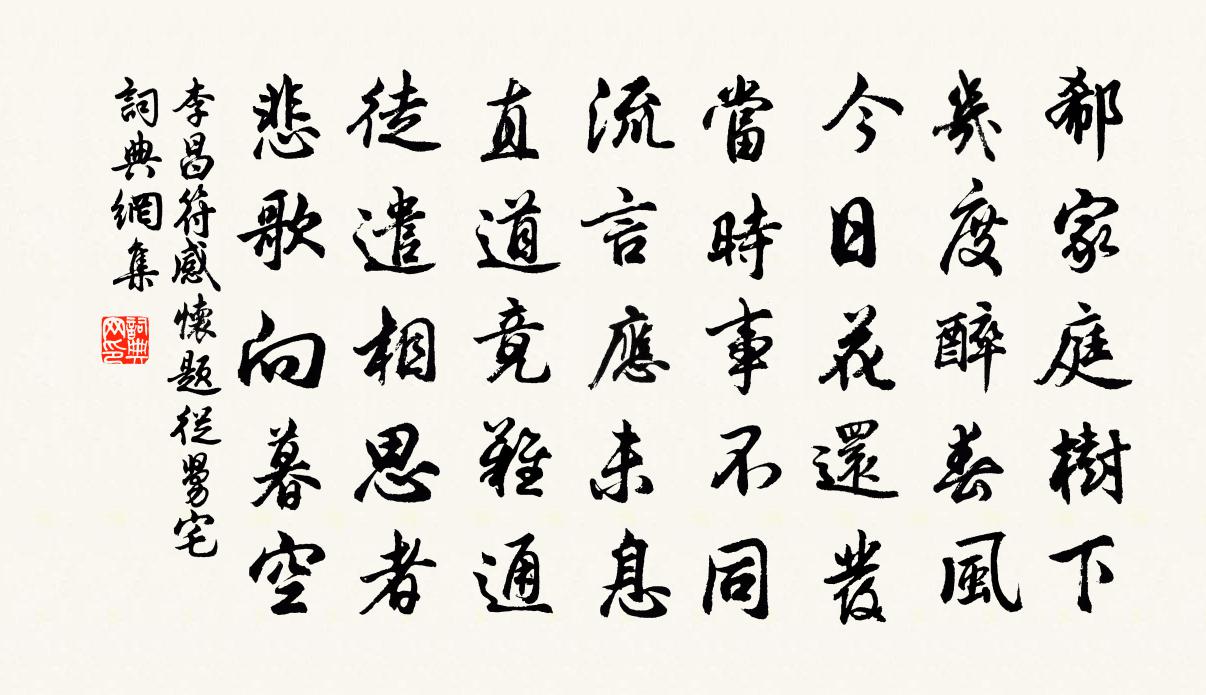 郗家庭樹下
幾度醉春風
今日花還發
當時事不同
流言應未息
直道竟難通
徒遣相思者
悲歌向暮空
李昌符感懷題從舅宅
詞典網集
詞典網印